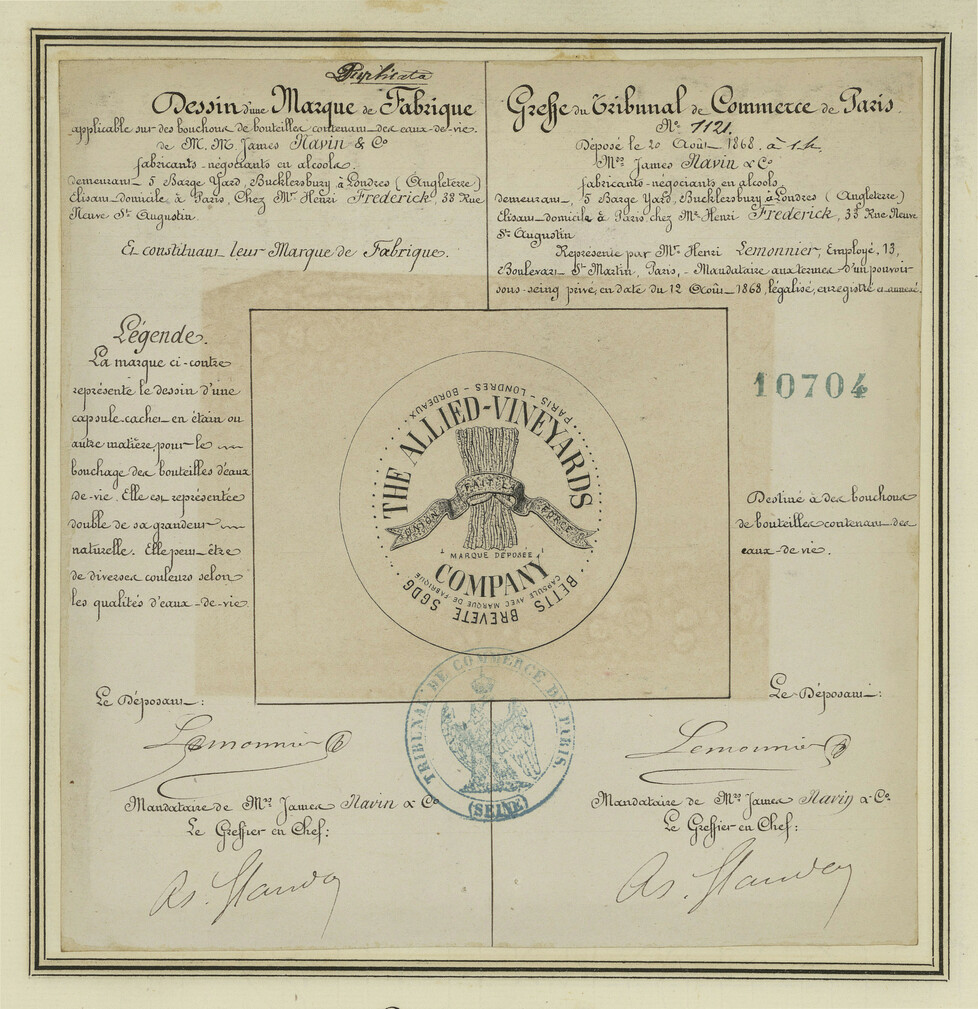 Duplicata
Dessin d'une Marque de Fabrique
applicable sur des bouchons de bouteilles contenant des eaux-de-vie.
de M. M. James Navin & Co
fabricants-négociants en alcools.
demeurant 5 Barge Yard, Bucklersbury, à Londres (Angleterre)
Élisant domicile à Paris, Chez Mr Henri Frederick, 33 Rue
Neuve St Augustin.
Et constituant leur Marque de Fabrique.
Greffe du Tribunal de Commerce de Paris.
No 1121.
Déposé le 20 Août 1868. à 1 h.
Mrs James Navin & Co
fabricants-négociants en alcools
demeurant, 5 Barge Yard, Bucklersbury, à Londres (Angleterre)
Élisant domicile à Paris chez Mr Henri Frederick, 33 Rue Neuve
St Augustin
Représenté par Mr Henri Lemonnier, Employé, 13,
Boulevart St Martin, Paris, - Mandataire aux termes d'un pouvoir
sous-seing privé, en date du 12 Août 1868, légalisé, enregistré et annexé.
Légende.
La marque ci-contre
représente le dessin d'une
capsule-cachet en étain ou
autre matière, pour le
bouchage des bouteilles d'eaux
de-vie. Elle est représentée
double de sa grandeur
naturelle. Elle peut être
de diverses couleurs selon
les qualités d'eaux-de-vie.
PARIS - LONDRES - BORDEAUX
THE ALLIED-VINEYARDS
UNION FAIT LA FORCE
MARQUE DÉPOSÉE
COMPANY
CAPSULE AVEC MARQUE DE FABRIQUE
BETTS BREVETÉ SGDG
10704
Destiné à des bouchons
de bouteilles contenant des
eaux-de-vie.
TRIBUNAL DE COMMERCE DE PARIS.
(SEINE)
Le Déposant:
Lemonnier
Mandataire de Mrs James Navin & Co
Le Greffier en Chef:
Le Déposant:
Lemonnier
Mandataire de Mrs James Navin & Co.
Le Greffier en Chef: